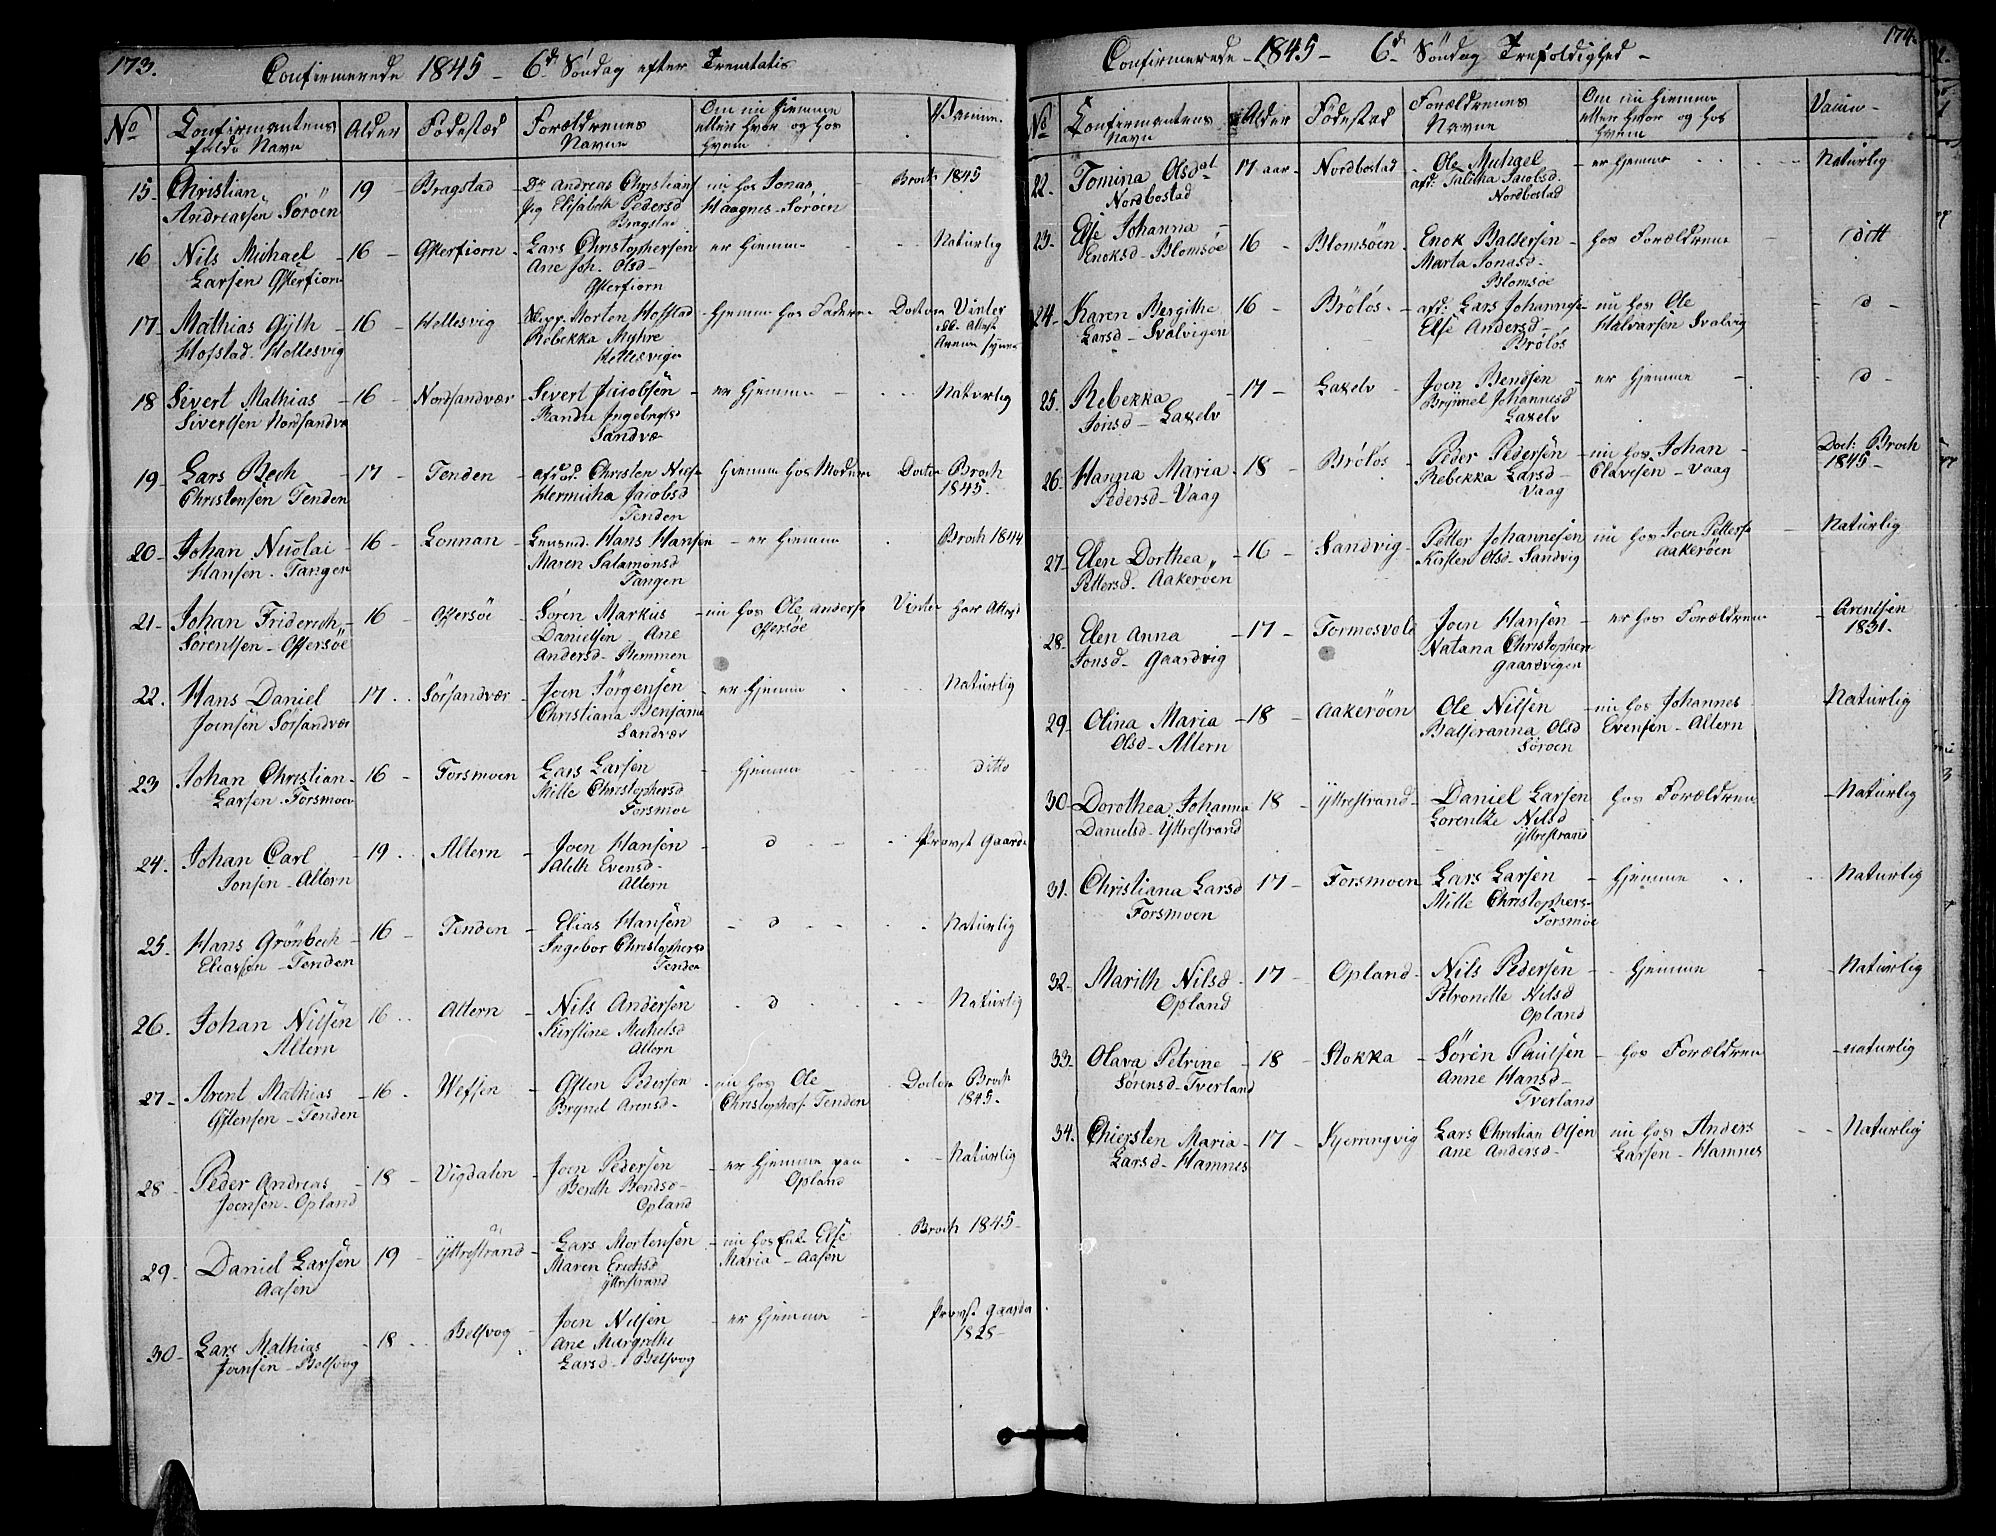 173.
Confirmerede 1845 - 6d. Söndag efter Trenitatis
No
Confirmantens fulde Navn
Alder
Födestæd
Forældrenes Navne
Om nu hiemme eller hvor og hos hvem
Vaccine.
15 - Christian Andreassen Söröen
19 - Bragstad - Andreas Christians
Elisabeth Pedersd Bragstad
nu hos Jonas Haagnes - Söröen
Broch 1845
16 Nils Michael Larsen
16 - Lars Christophersen
Ane Joh. Olsd -
er hiemme - Naturlig
17 - Mathias Gjth Hofstad. Hellesvig
16 - Hellesvig - Morten Hofstad
Rebekka Myhre Hellesvigen
hjemme hos Faderen
18 Sivert Mathias Sivertsen Nordsandvæ
16 - Nordsandvær - Sivert Jacobsen
Sandvæ
er hjemme - Naturlig
19 - Lars Bech Christensen Tenden
17 - Tenden - Christen Nils
Jacobsd Tenden
hjemme hos Moderen Doctor Broch 1845.
20 - Johan Nicolai Hansen. Tangen
16 - Lonnan - Hans Hansen
Maren Salamonsd Tangen
- er hiemme Broch 1844
21 - Johan Friderich Sörentsen - Offersöe
16 - Offersöe - Sören Markus Danielsen - Ane Andersd - Remmen
nu hos Ole Anders Offersöe
22. Hans Daniel Joensen Sörsandvær
17. Sörsandvær - Joen Jörgensen
Christiana Benjam Sandvær
er hjemme Naturlig
23 Johan Christian Larsen. Forsmoen
16 - Forsmoen Lars Larsen
Mille Christophersd Forsmoe
- hjemme ditto
24. Johan Carl Jonsen - Altern
19. Altern - Joen Hansen
Alith Evensd - Altern
d - Provst Gaarde
25. Hans Grönbech Eliassen - Tenden
16 - Tenden - Elias Hansen
Ingebor Christophersd Tenden
- d - Naturlig
26. Johan Nilsen Altern
16. Altern - Nils Andersen
Kirstine Michelsd Altern
d Naturlig
27 - Arent Mathias Östensen - Tenden
16. Wefsen - Östen Pedersen
Brynel Arensd -
nu hos Ole Christophers. Tenden Doctor Broch 1845 -
28 - Peder Andreas Joensen - Opland
18 - Vigdalen - Joen Pedersen
Berith Bendsd - Opland
er hjemme paa Opland Naturlig
29 - Daniel Larsen Aasen
19 - Yttrestrand - Lars Mortensen
Maren Erichsd Yttrestrand
nu hos Enk. Else Maria - Aasen Broch 1845 -
30 - Lars Mathias Joensen - Belsvog
18. Belsvog - Joen Nilsen
Ane Margrethe Larsd - Belsvog
er hjemme Provst Gaarde 1828 -
174.
Confirmerede - 1845 - 6d Söndag Trefoldighed -
No
Confirmantens Navn
Alder
Födestad
Forældrenes Navne
Om nu hiemme eller hvor og hos hvem
Vaccine -
22. Tomina Olsdat Nordbostad
17 aar - Nordbostad - Ole Michael
afd: Talitha Jacobsd. Nordbostad
- er hjemme Naturlig
23. Else Johanna Enoksd - Blomsöe
16 - Blomsöen. Enok Baltersen
Marta Jonasd - Blomsöe
hos Forældrene ditt
24. Karen Bergithe Larsd - Svalvigen
16 - Brölös. - afd: Lars Johannes
Else Andersd - Brölös
nu hos Ole Halvarsen Svalvig - d -
25. Rebekka Jonsd - Laxelv
17 - Laxelv - Joen Bendsen
Brynnel Johannesd Laxelv
- er hjemme - d -
26. Hanna Maria Pedersd - Vaag
18 - Brölös - Peder Pedersen
Rebekka Larsd - Vaag
nu hos Johan Olavesen - Vaag Doct: Broch 1845 -
27 - Elen Dorthea Pettersd. Aakeröen
16 - Sandvig - Petter Johannesen
Kirsten Olsd - Sandvig
nu hos Joen Petters Aakeröen - Naturlig
28. Elen Anna Jonsd - Gaardvig
17 - Formosvold Joen Hansen
Natana Christophers Gaardvigen
er hos Forældrene - Arentsen 1831.
29. Olina Maria Olsd - Altern
18 - Aakeröen Ole Nilsen
Balseranna Olsd Söröen
nu hos Johannes Evensen - Altern Naturlig
30 - Dorothea Johanna Danielsd - Yttrestrand
18 - Yttrestrand - Daniel Larsen
Lorentze Nilsd Yttrestrand
hos Forældrene - Naturlig
31. Christiana Larsd Forsmoen
17 - Forsmoen Lars Larsen
Mille Christophers - Forsmoe
- hjemme Naturlig
32. Marith Nilsd Opland
17 - Opland - Nils Pedersen
Petronelle Nilsd Opland
hjemme - Naturlig
33 - Olava Petrine Sörensd - Tverland
18 - Stokka - Sören Paulsen
Anne Hansd - Tverland
- hos Forældrene - naturlig
34. Chiersten Maria Larsd - Hamnes
17 - Kjerringvig Lars Christian Olsen
Ane Andersd -
nu hos Anders Larsen - Hamnes - Naturlig